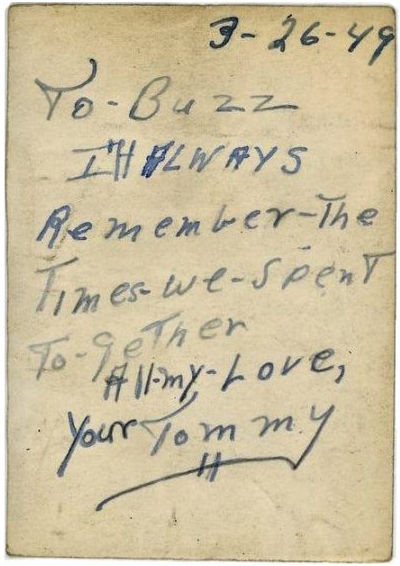 3-26-49
To-Buzz
I'll ALWAYS
Remember-The
Times-we-spent
To-geTher
All-my-Love,
Your Tommy